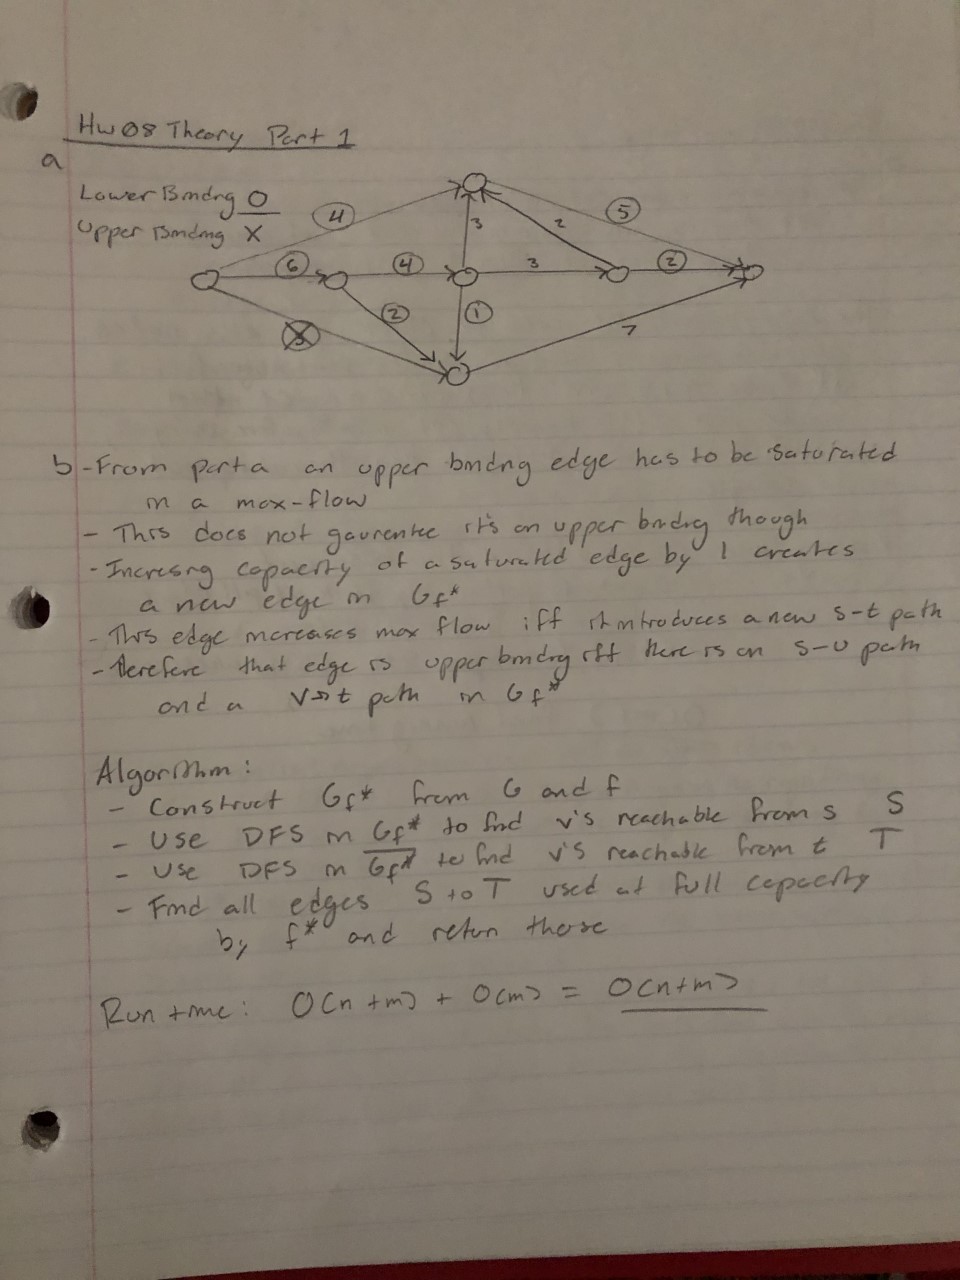 HW08 Theory Part 1
a
Lower Bindng O
Upper Bindng X
4
5
3
2
6
4
3
2
2
1
7
b - From part a an upper bindng edge has to be saturated
in a max-flow
- This does not gaurentee it's an upper bndng though
- Incresng capacity of a saturated edge by 1 creates
a new edge in Gf*
- This edge increases max flow iff it introduces a new s-t path
- therefore that edge is upper bindng iff there is an s-u path
and a v→t path in Gf*
Algorithm:
- Construct Gf* from G and f
- Use DFS in Gf* to find v's reachable from s S
- Use DFS in Gf* to find v's reachable from t T
- Find all edges S to T used at full capacity
by f* and return these
Run time: O(n+m) + O(m) = O(n+m)